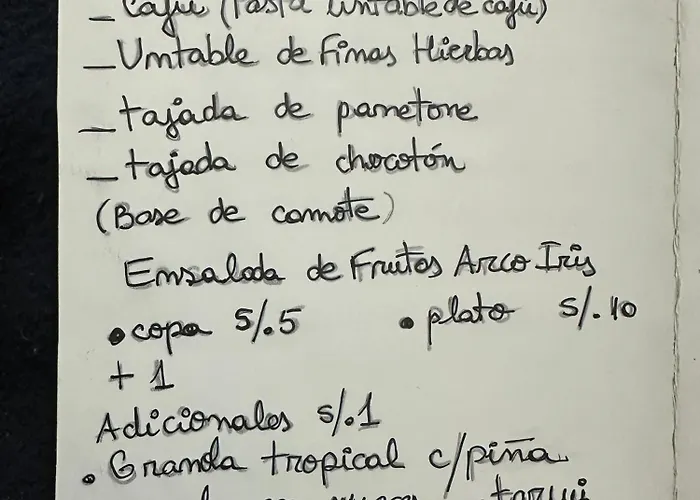 _ Cajú (Pasta Untable de cajú)
_ Untable de Finas Hierbas
_ tajada de panetone
_ tajada de chocotón
(Base de camote)
Ensalada de Frutos Arco Iris
• copa S/.5 • plato S/.10
+ 1
Adicionales S/.1
• Granola tropical c/piña
tarwi